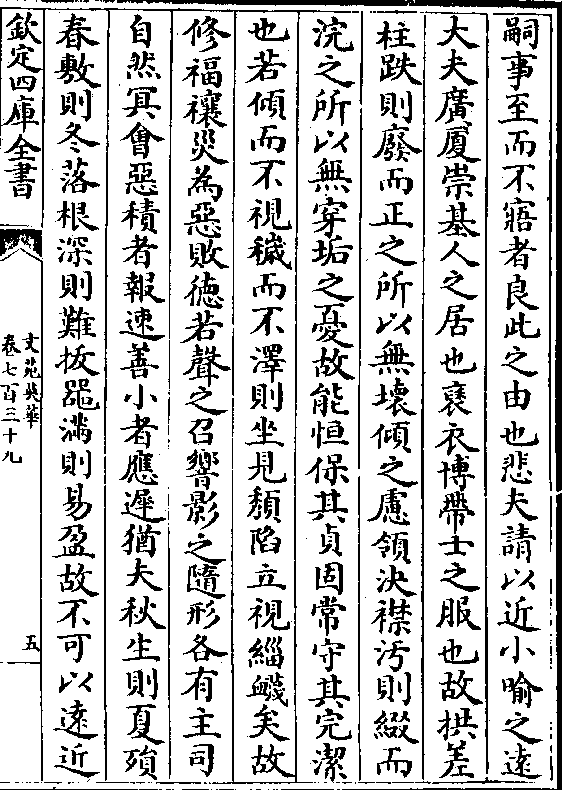 嗣事至而不寤者良此之由也悲夫請以近小喻之遠
大夫廣厦崇基人之居也裒衣博帶士之服也故拱差
柱跌則廢而正之所以無壊傾之慮領決襟汚則綴而
浣之所以無穿垢之憂故能恒保其貞固常守其完潔
也若傾而不視穢而不澤則坐見頽陷立視緇衊矣故
修福禳災為惡敗徳若聲之召響影之隨形各有主司
自然冥㑹惡積者報速善小者應遲猶夫秋生則夏殞
春敷則冬落根深則難拔噐滿則易盈故不可以遠近
欽定四庫全書
文苑英華
卷七百三十九
五